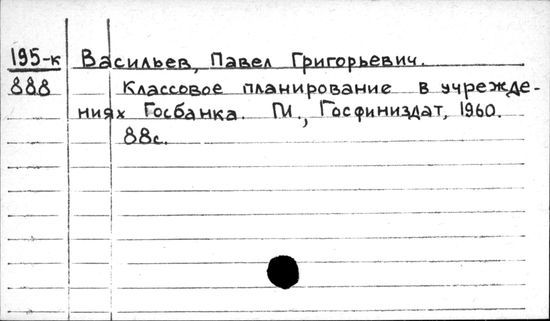 195-к Васильев, Павел Григорьевич.
888 Классовое планирование в учрежде-
ниях Госбанка. М., Госфиниздат, 1960.
88с.